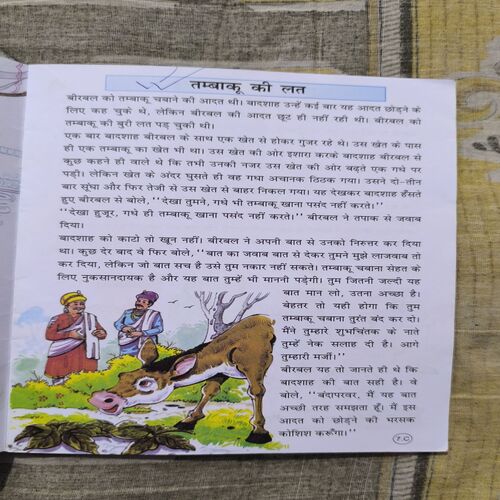 तम्बाकू की लत
बीरबल को तम्बाकू चबाने की आदत थी। बादशाह उन्हें कई बार यह आदत छोड़ने के
लिए कह चुके थे, लेकिन बीरबल की आदत छूट ही नहीं रही थी। बीरबल को
तम्बाकू की बुरी लत पड़ चुकी थी।
एक बार बादशाह बीरबल के साथ एक खेत से होकर गुजर रहे थे। उस खेत के पास
ही एक तम्बाकू का खेत भी था। उस खेत की ओर इशारा करके बादशाह बीरबल से
कुछ कहने ही वाले थे कि तभी उनकी नजर उस खेत की ओर बढ़ते एक गधे पर
पड़ी। लेकिन खेत के अंदर घुसते ही वह गधा अचानक ठिठक गया। उसने दो-तीन
बार सूंघा और फिर तेजी से उस खेत से बाहर निकल गया। यह देखकर बादशाह हँसते
हुए बीरबल से बोले, ‘‘देखा तुमने, गधे भी तम्बाकू खाना पसंद नहीं करते।’’
‘‘देखा हुजूर, गधे ही तम्बाकू खाना पसंद नहीं करते।’’ बीरबल ने तपाक से जवाब
दिया।
बादशाह को काटो तो खून नहीं। बीरबल ने अपनी बात से उनको निरुत्तर कर दिया
था। कुछ देर बाद वे फिर बोले, ‘‘बात का जवाब बात से देकर तुमने मुझे लाजवाब तो
कर दिया, लेकिन जो बात सच है उसे तुम नकार नहीं सकते। तम्बाकू चबाना सेहत के
लिए नुकसानदायक है और यह बात तुम्हें भी माननी पड़ेगी। तुम जितनी जल्दी यह
बात मान लो, उतना अच्छा है।
बेहतर तो यही होगा कि तुम
तम्बाकू चबाना तुरंत बंद कर दो।
मैंने तुम्हारे शुभचिंतक के नाते
तुम्हें नेक सलाह दी है। आगे
तुम्हारी मर्जी।’’
बीरबल यह तो जानते ही थे कि
बादशाह की बात सही है। वे
बोले, ‘‘बंदापरवर, मैं यह बात
अच्छी तरह समझता हूँ। मैं इस
आदत को छोड़ने की भरसक
कोशिश करूँगा।’’
7.C